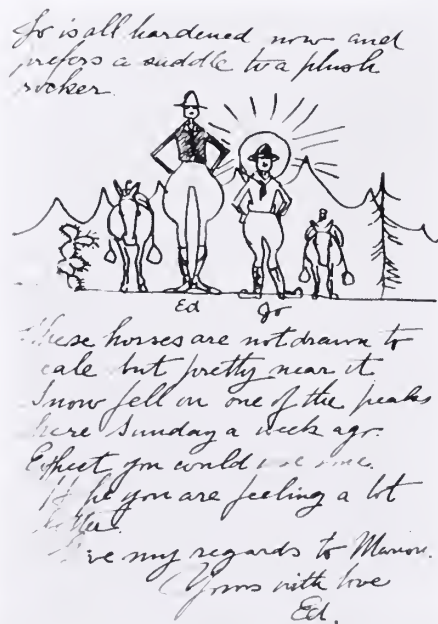 Jo is all hardened now and
prefers a saddle to a plush
rocker.
Ed Jo
These horses are not drawn to
scale but pretty near it.
Snow fell on one of the peaks
here Sunday a week ago.
Expect you could use some.
Hope you are feeling a lot
better.
Give my regards to Marion.
Yours with love
Ed.